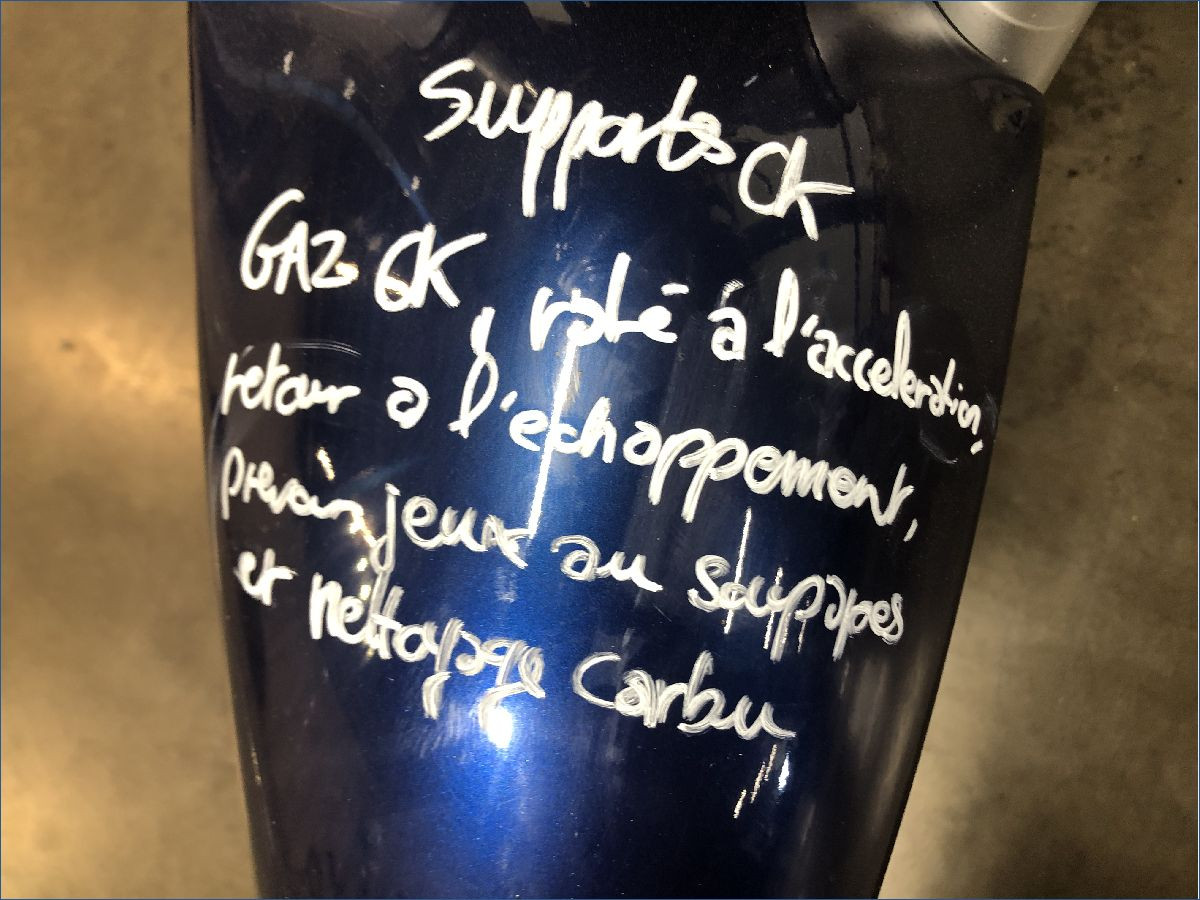 Supports OK
GAZ OK, raté à l'acceleration,
retour a l'échappement,
prévoir jeux au soupapes
et nettoyage Carbu